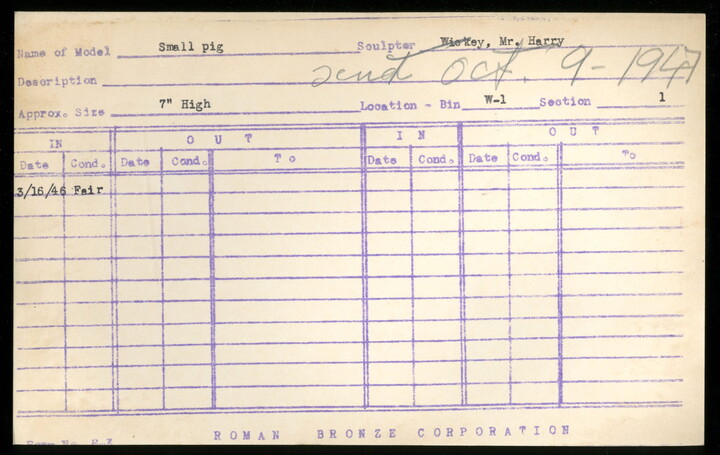 Name of Model Small pig Sculptor Wickey, Mr. Harry
Description send Oct. 9-1947
Approx. Size 7" High Location - Bin W-1 Section 1
IN OUT IN OUT
Date Cond. Date Cond. To Date Cond. Date Cond. To
3/16/46 Fair
ROMAN BRONZE CORPORATION